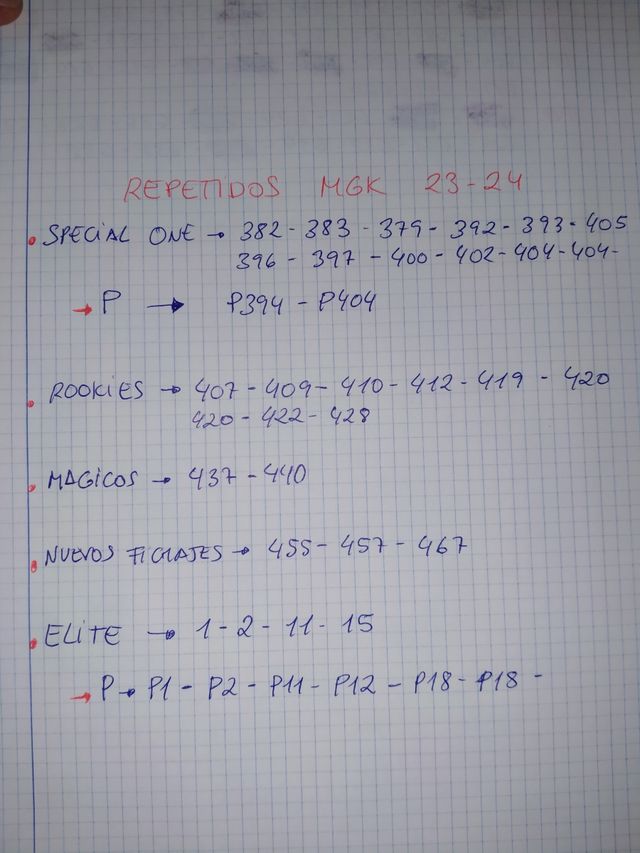 REPETIDOS MGK 23-24
• SPECIAL ONE → 382 - 383 - 379 - 392 - 393 - 405
396 - 397 - 400 - 402 - 404 - 404 -
→ P → P394 - P404
• ROOKIES → 407 - 409 - 410 - 412 - 419 - 420
420 - 422 - 428
• MAGICOS → 437 - 440
• NUEVOS FICHAJES → 455 - 457 - 467
• ELITE → 1 - 2 - 11 - 15
→ P → P1 - P2 - P11 - P12 - P18 - P18 -